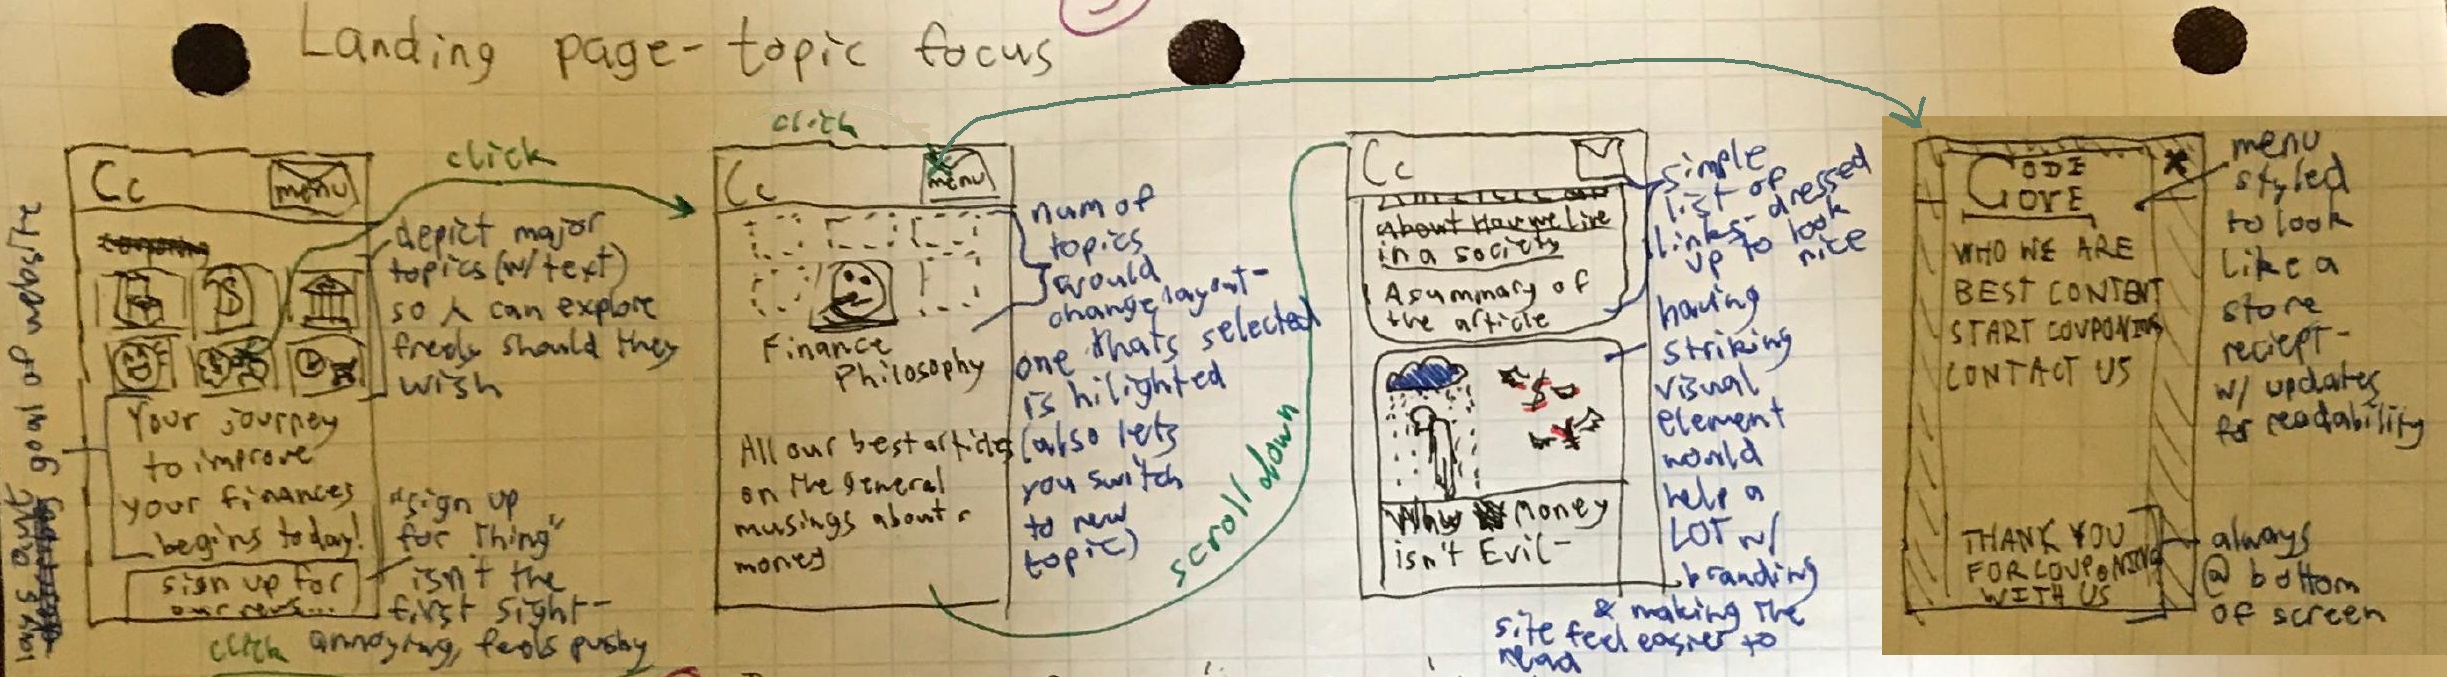 Landing page - topic focus
lays out
goal of website
Cc
menu
click
depict major
topics (w/ text)
so λ can explore
freely should they
wish
Your journey
to improve
your finances
begins today!
sign up for
our news...
"sign up
for thing"
isn't the
first sight -
annoying, feels pushy
click
click
Cc
menu
Finance
Philosophy
All our best articles
on the general
musings about
money
num of
topics
would
change layout -
one thats selected
is hilighted
(also lets
you switch
to new
topic)
scroll down
Cc
About How we Live
in a society
A summary of
the article
Why Money
isn't Evil -
simple
list of
links - dressed
up to look
nice
having
striking
visual
element
world
help a
LOT w/
branding
& making the
site feel easier to
read
CODE
COVE
WHO WE ARE
BEST CONTENT
START COUPONING
CONTACT US
THANK YOU
FOR COUPONING
WITH US
menu
styled
to look
like a
store
reciept -
w/ updates
for readability
always
@ bottom
of screen